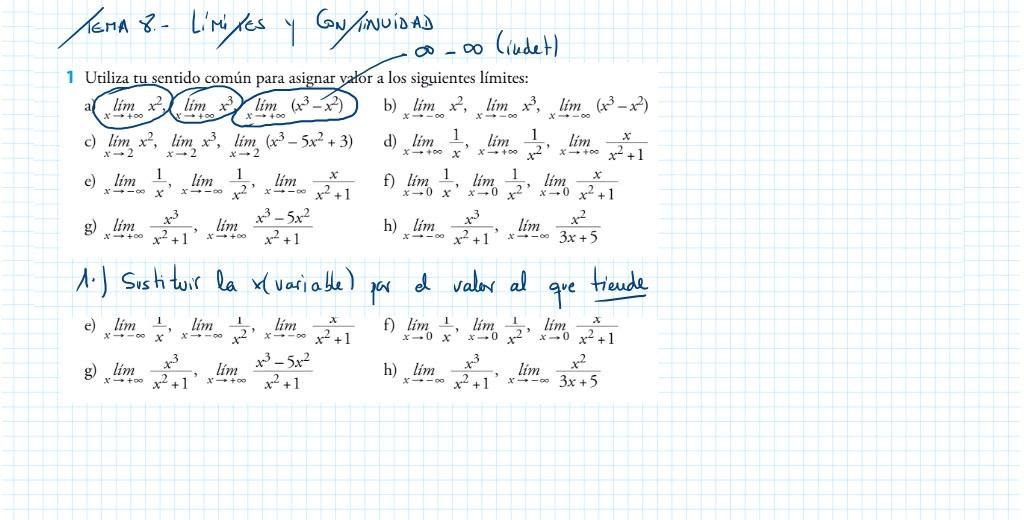 TEMA 8.- LÍMITES y CONTINUIDAD
∞ - ∞ (indet)
1 Utiliza tu sentido común para asignar valor a los siguientes límites:
a) lím x→+∞ x², lím x→+∞ x³, lím x→+∞ (x³ – x²) b) lím x→–∞ x², lím x→–∞ x³, lím x→–∞ (x³ – x²)
c) lím x→2 x², lím x→2 x³, lím x→2 (x³ – 5x² + 3) d) lím x→+∞ 1/x, lím x→+∞ 1/x², lím x→+∞ x/(x² + 1)
e) lím x→–∞ 1/x, lím x→–∞ 1/x², lím x→–∞ x/(x² + 1) f) lím x→0 1/x, lím x→0 1/x², lím x→0 x/(x² + 1)
g) lím x→+∞ x³/(x² + 1), lím x→+∞ (x³ – 5x²)/(x² + 1) h) lím x→–∞ x³/(x² + 1), lím x→–∞ x²/(3x + 5)
1.) Sustituir la x(variable) por el valor al que tiende
e) lím x→–∞ 1/x, lím x→–∞ 1/x², lím x→–∞ x/(x² + 1) f) lím x→0 1/x, lím x→0 1/x², lím x→0 x/(x² + 1)
g) lím x→+∞ x³/(x² + 1), lím x→+∞ (x³ – 5x²)/(x² + 1) h) lím x→–∞ x³/(x² + 1), lím x→–∞ x²/(3x + 5)